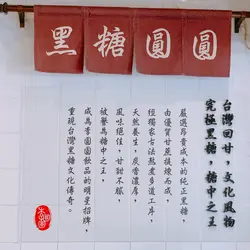 黑糖圓圓
台灣回甘,文化風物
究極黑糖,糖中之王
嚴選昂貴成本的純正黑糖,
由優質甘蔗提煉而成,
經獨家古法熬煮多道工序,
天然養生,炭香濃厚,
風味絕佳,甘甜不膩,
被譽為糖中之王,
成為李圓圓飲品的明星招牌,
重現台灣黑糖文化傳奇。